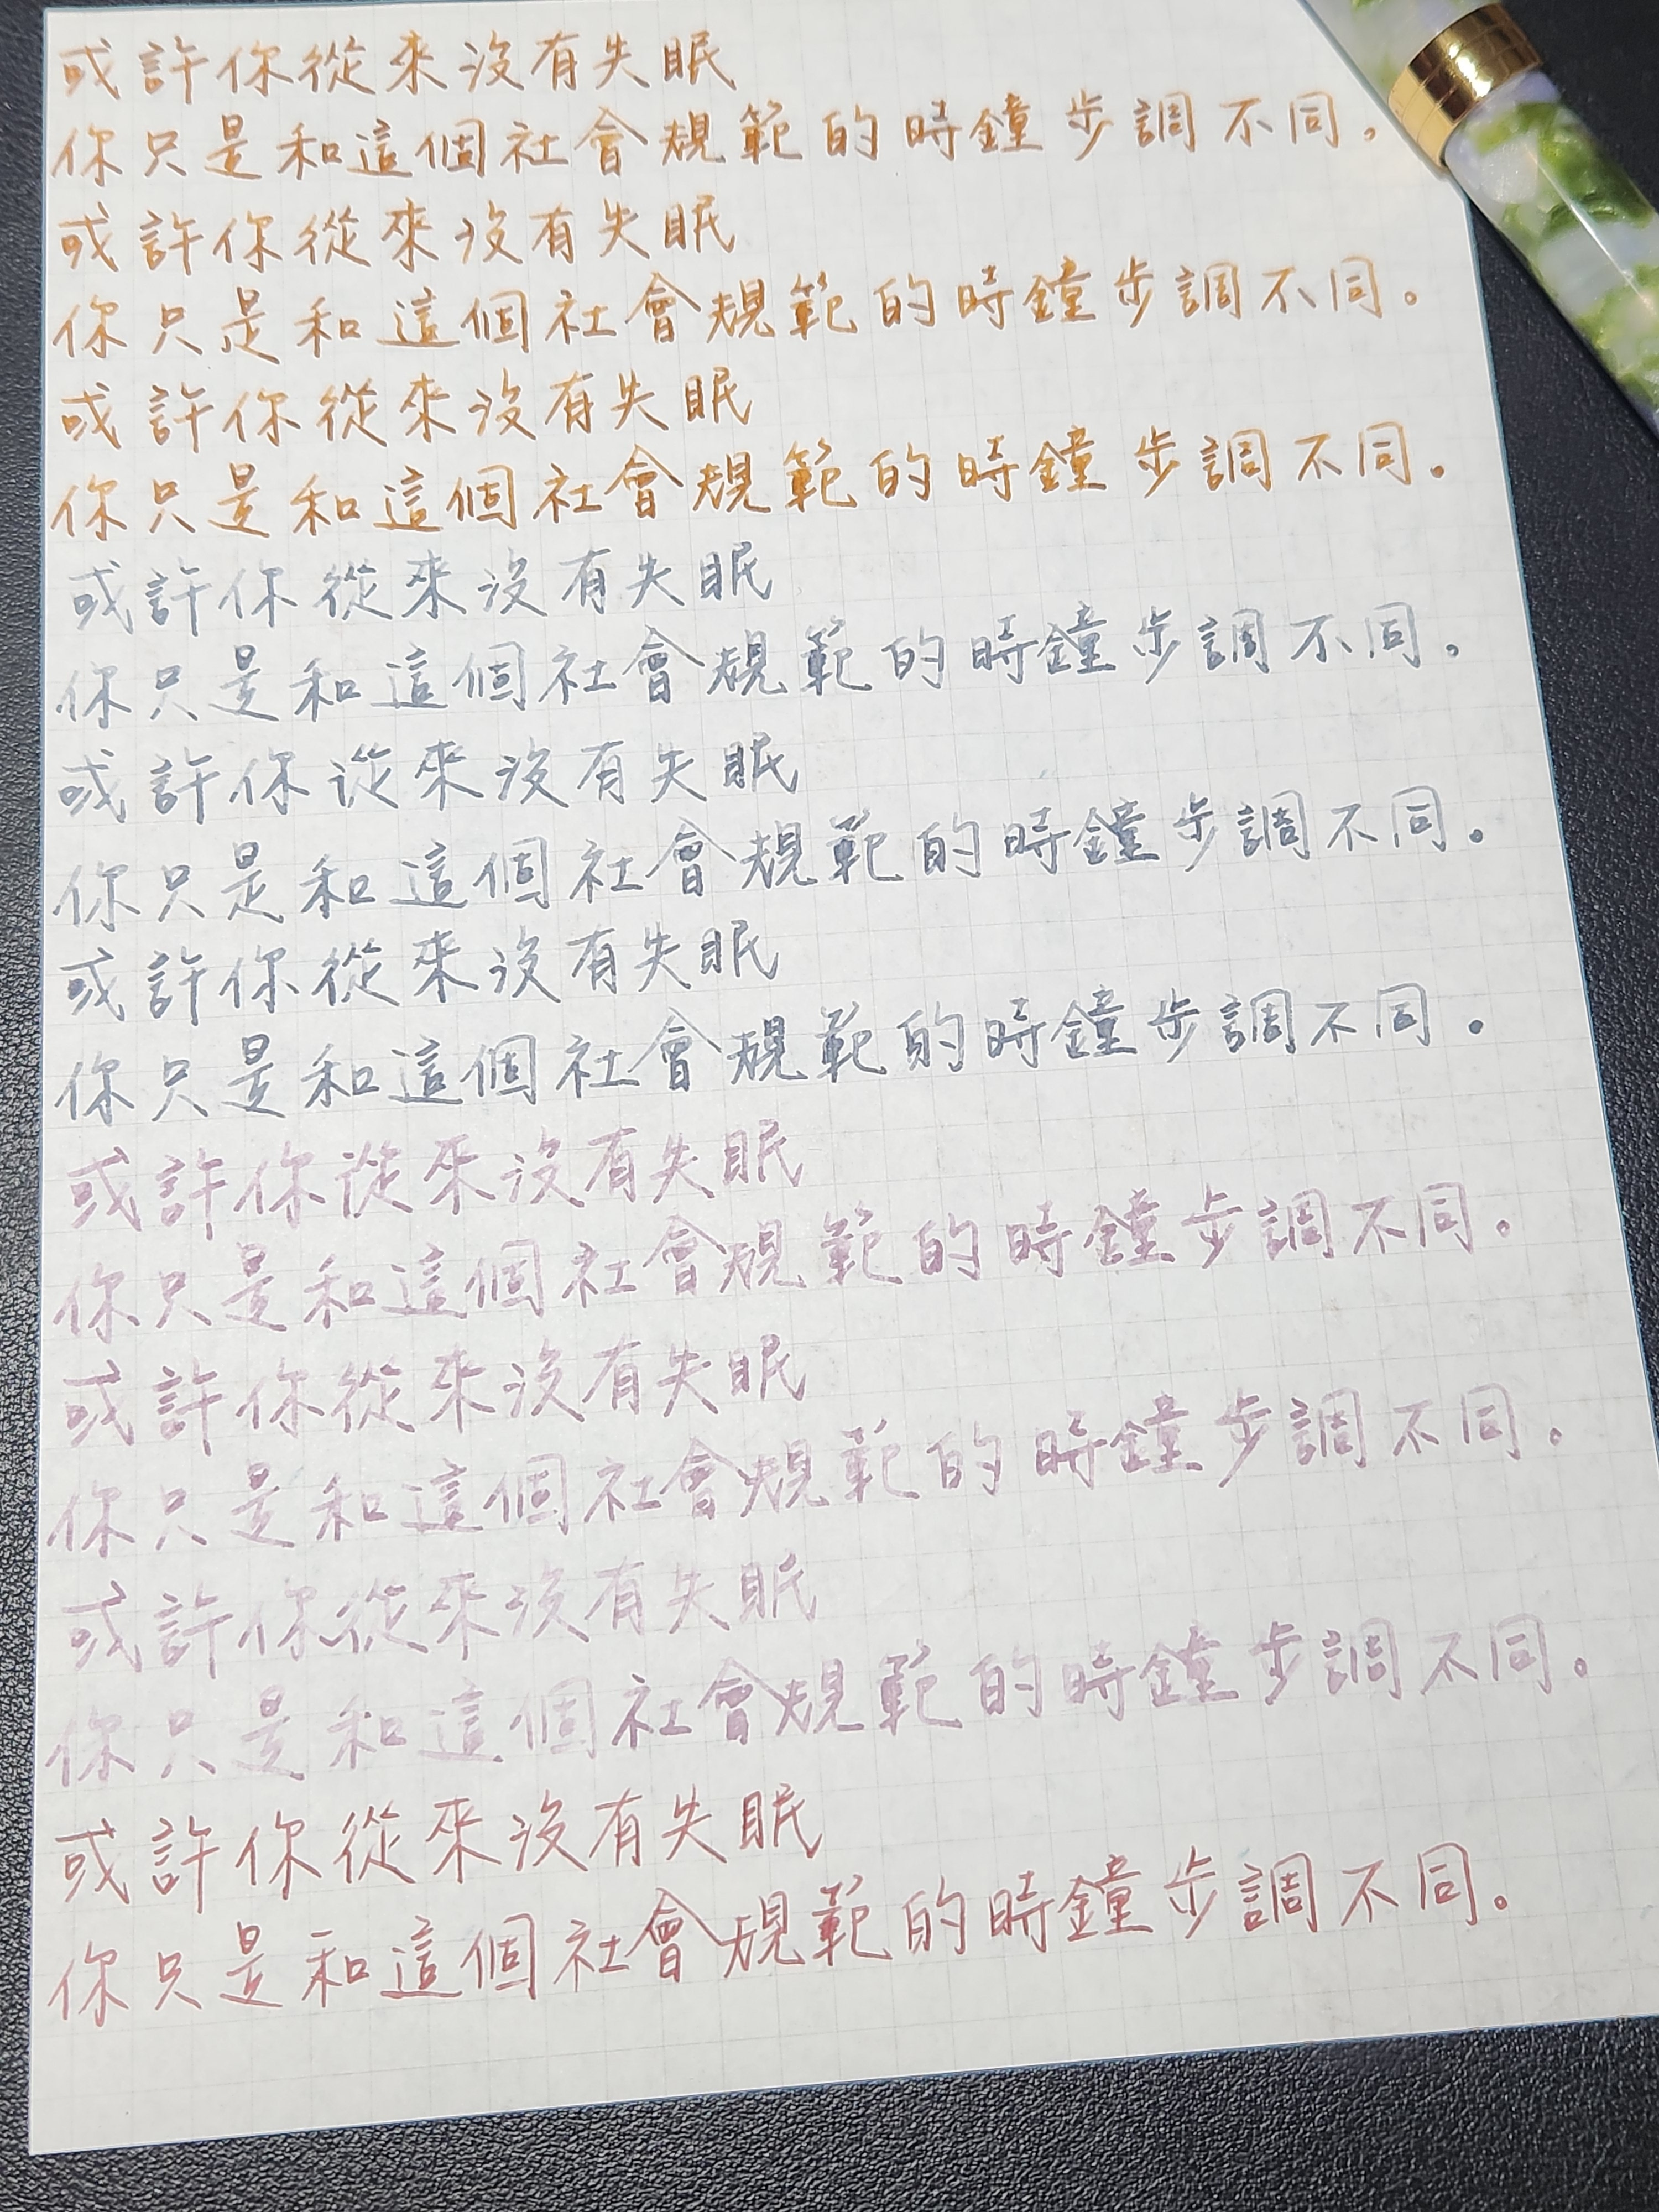 或許你從來沒有失眠
你只是和這個社會規範的時鐘步調不同。
或許你從來沒有失眠
你只是和這個社會規範的時鐘步調不同。
或許你從來沒有失眠
你只是和這個社會規範的時鐘步調不同。
或許你從來沒有失眠
你只是和這個社會規範的時鐘步調不同。
或許你從來沒有失眠
你只是和這個社會規範的時鐘步調不同。
或許你從來沒有失眠
你只是和這個社會規範的時鐘步調不同。
或許你從來沒有失眠
你只是和這個社會規範的時鐘步調不同。
或許你從來沒有失眠
你只是和這個社會規範的時鐘步調不同。
或許你從來沒有失眠
你只是和這個社會規範的時鐘步調不同。
或許你從來沒有失眠
你只是和這個社會規範的時鐘步調不同。